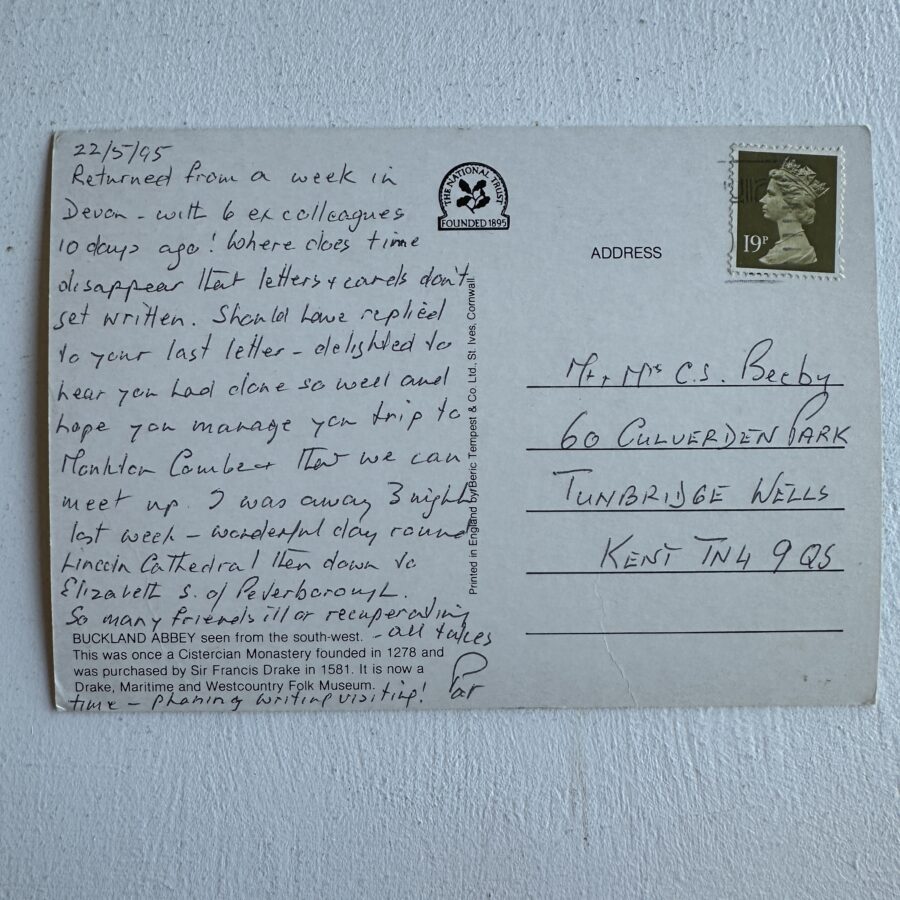 22/5/95
Returned from a week in
Devon - with 6 ex colleagues
10 days ago! Where does time
disappear that letters + cards don't
get written. Should have replied
to your last letter - delighted to
hear you had done so well and
hope you manage you trip to
Monkton Combe + that we can
meet up. I was away 3 nights
last week - wonderful day round
Lincoln Cathedral then down to
Elizabeth S. of Peterborough.
So many friends ill or recuperating
- all takes
time - phoning writing visiting!
Pat
BUCKLAND ABBEY seen from the south-west.
This was once a Cistercian Monastery founded in 1278 and
was purchased by Sir Francis Drake in 1581. It is now a
Drake, Maritime and Westcountry Folk Museum.
THE NATIONAL TRUST
FOUNDED 1895
Printed in England by Beric Tempest & Co. Ltd., St. Ives, Cornwall
19P
ADDRESS
Mr + Mrs C.S. Beeby
60 CULVERDEN PARK
TUNBRIDGE WELLS
KENT TN4 9QS